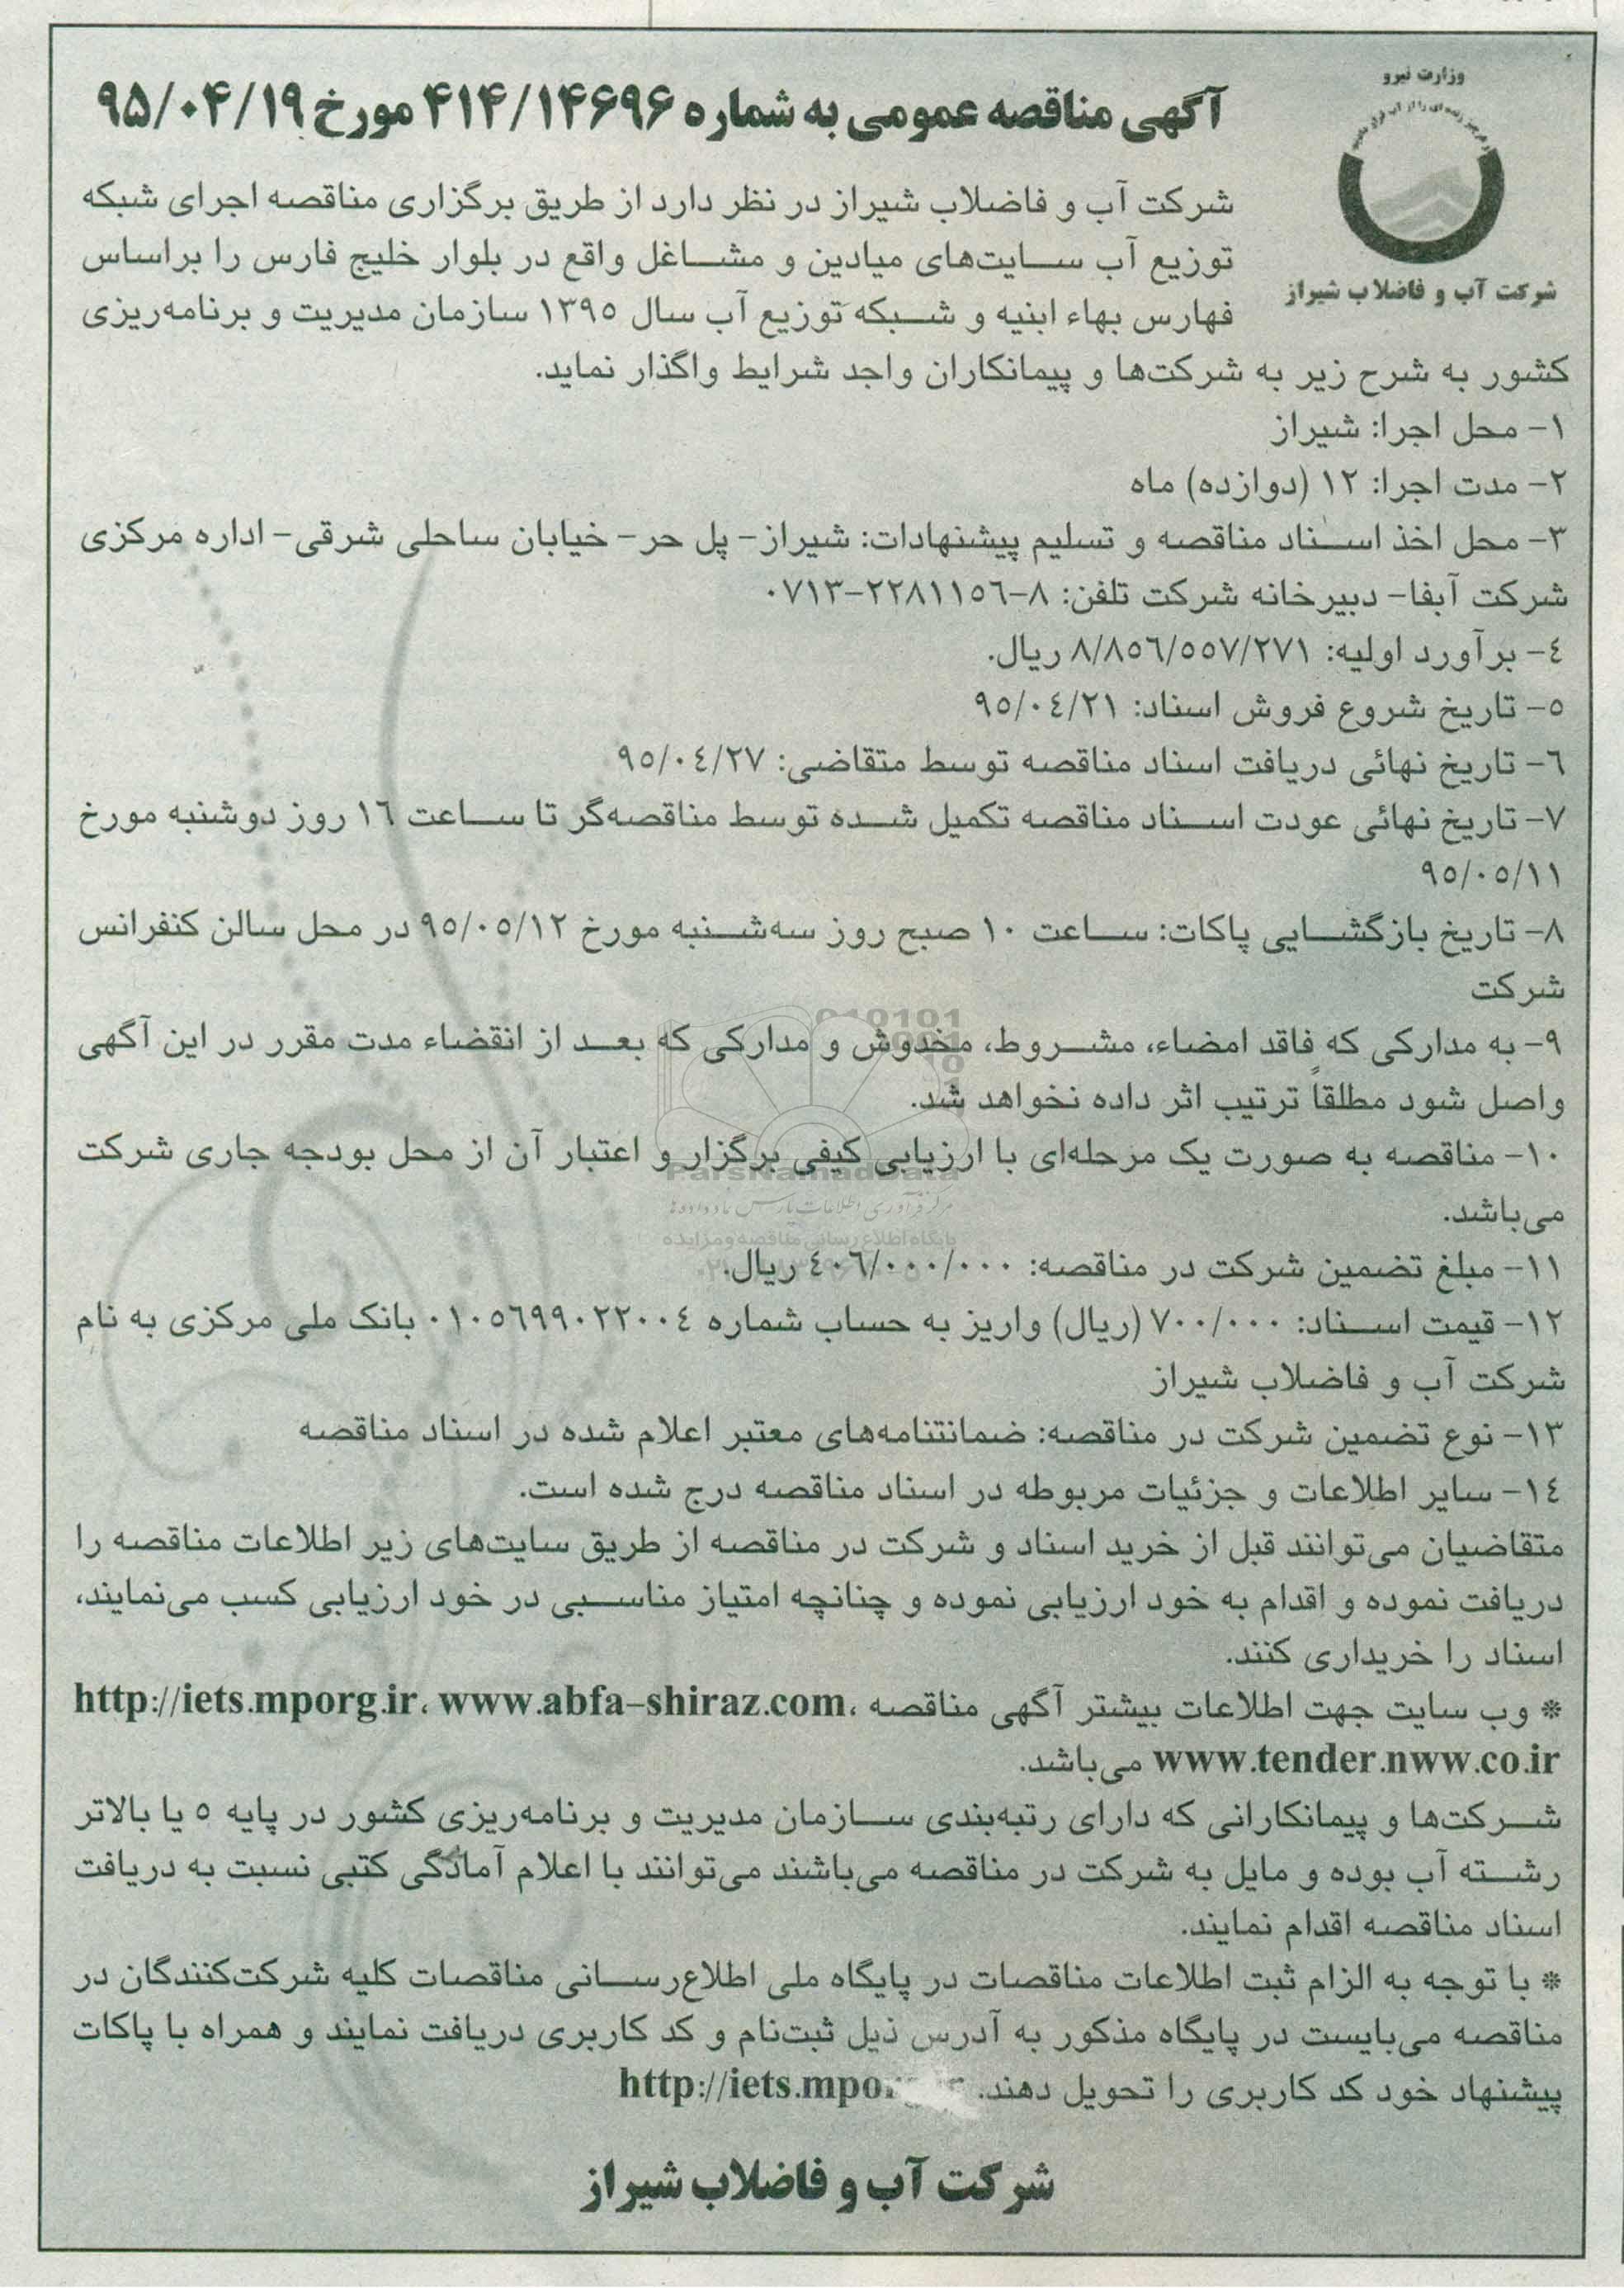 وزارت نیرو
شرکت آب و فاضلاب شیراز
آگهی مناقصه عمومی به شماره ۴۱۴/۱۴۶۹۶ مورخ ۹۵/۰۴/۱۹
شرکت آب و فاضلاب شیراز در نظر دارد از طریق برگزاری مناقصه اجرای شبکه
توزیع آب سایت‌های میادین و مشاغل واقع در بلوار خلیج فارس را براساس
فهارس بهاء ابنیه و شبکه توزیع آب سال ۱۳۹۵ سازمان مدیریت و برنامه‌ریزی
کشور به شرح زیر به شرکت‌ها و پیمانکاران واجد شرایط واگذار نماید.
۱- محل اجرا: شیراز
۲- مدت اجرا: ۱۲ (دوازده) ماه
۳- محل اخذ اسناد مناقصه و تسلیم پیشنهادات: شیراز- پل حر- خیابان ساحلی شرقی- اداره مرکزی
شرکت آبفا- دبیرخانه شرکت تلفن: ۸-۲۲۸۱۱۵۶-۰۷۱۳
۴- برآورد اولیه: ۸/۸۵۶/۵۵۷/۲۷۱ ریال.
۵- تاریخ شروع فروش اسناد: ۹۵/۰۴/۲۱
۶- تاریخ نهائی دریافت اسناد مناقصه توسط متقاضی: ۹۵/۰۴/۲۷
۷- تاریخ نهائی عودت اسناد مناقصه تکمیل شده توسط مناقصه‌گر تا ساعت ۱۶ روز دوشنبه مورخ
۹۵/۰۵/۱۱
۸- تاریخ بازگشایی پاکات: ساعت ۱۰ صبح روز سه‌شنبه مورخ ۹۵/۰۵/۱۲ در محل سالن کنفرانس
شرکت
۹- به مدارکی که فاقد امضاء، مشروط، مخدوش و مدارکی که بعد از انقضاء مدت مقرر در این آگهی
واصل شود مطلقاً ترتیب اثر داده نخواهد شد.
۱۰- مناقصه به صورت یک مرحله‌ای با ارزیابی کیفی برگزار و اعتبار آن از محل بودجه جاری شرکت
ParsNamadData
می‌باشد.
مرکز فرآوری اطلاعات پارس نماد داده‌ها
پایگاه اطلاع رسانی مناقصه و مزایده
۱۱- مبلغ تضمین شرکت در مناقصه: ۴۰۶/۰۰۰/۰۰۰ ریال.
۱۲- قیمت اسناد: ۷۰۰/۰۰۰ (ریال) واریز به حساب شماره ۰۱۰۵۶۹۹۰۲۲۰۰۴ بانک ملی مرکزی به نام
شرکت آب و فاضلاب شیراز
۱۳- نوع تضمین شرکت در مناقصه: ضمانتنامه‌های معتبر اعلام شده در اسناد مناقصه
۱۴- سایر اطلاعات و جزئیات مربوطه در اسناد مناقصه درج شده است.
متقاضیان می‌توانند قبل از خرید اسناد و شرکت در مناقصه از طریق سایت‌های زیر اطلاعات مناقصه را
دریافت نموده و اقدام به خود ارزیابی نموده و چنانچه امتیاز مناسبی در خود ارزیابی کسب می‌نمایند،
اسناد را خریداری کنند.
* وب سایت جهت اطلاعات بیشتر آگهی مناقصه http://iets.mporg.ir، www.abfa-shiraz.com،
www.tender.nww.co.ir می‌باشد.
شرکت‌ها و پیمانکارانی که دارای رتبه‌بندی سازمان مدیریت و برنامه‌ریزی کشور در پایه ۵ یا بالاتر
رشته آب بوده و مایل به شرکت در مناقصه می‌باشند می‌توانند با اعلام آمادگی کتبی نسبت به دریافت
اسناد مناقصه اقدام نمایند.
* با توجه به الزام ثبت اطلاعات مناقصات در پایگاه ملی اطلاع‌رسانی مناقصات کلیه شرکت‌کنندگان در
مناقصه می‌بایست در پایگاه مذکور به آدرس ذیل ثبت‌نام و کد کاربری دریافت نمایند و همراه با پاکات
پیشنهاد خود کد کاربری را تحویل دهند. http://iets.mpo
شرکت آب و فاضلاب شیراز